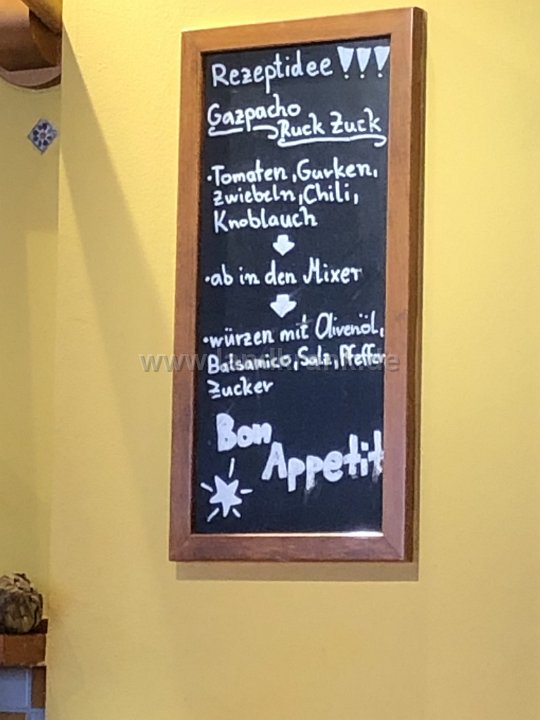 Rezeptidee!!!
Gazpacho
Ruck Zuck
·Tomaten, Gurken,
Zwiebeln, Chili,
Knoblauch
·ab in den Mixer
·würzen mit Olivenöl,
Balsamico, Salz, Pfeffer
Zucker
Bon
Appetit
www.landkrank.de